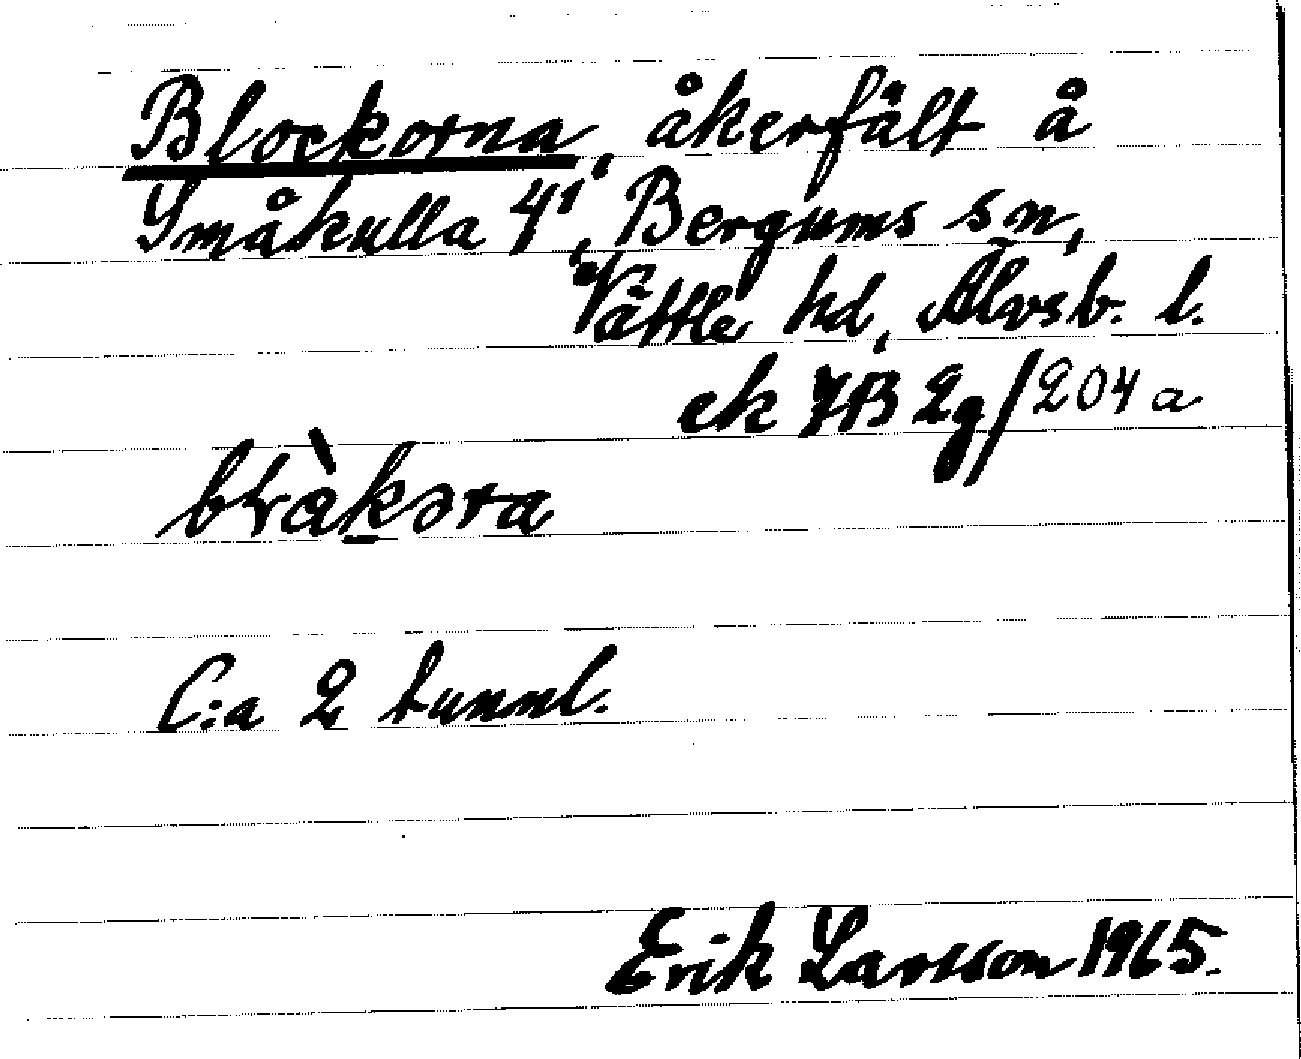 Blockorna, åkerfält å
Småkulla 4¹, Bergums sn,
Vättle hd, Älvsb. l.
ek 7B 2g/204a
bɽàkɔra
C:a 2 tunnl.
Erik Larsson 1965.